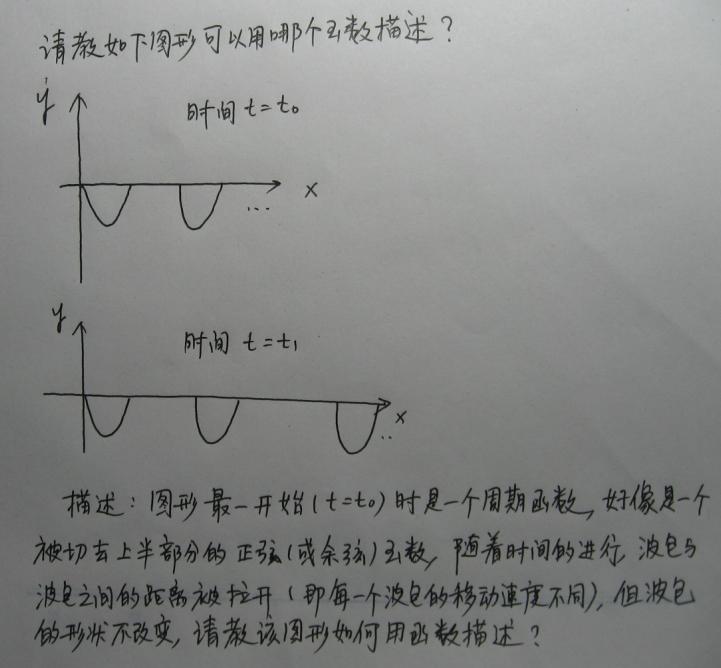 请教如下图形可以用哪个函数描述?
y
时间 t=t₀
x
...
y
时间 t=t₁
x
..
描述:图形最一开始(t=t₀)时是一个周期函数,好像是一个
被切去上半部分的正弦(或余弦)函数,随着时间的进行,波包与
波包之间的距离被拉开(即每一个波包的移动速度不同),但波包
的形状不改变,请教该图形如何用函数描述?